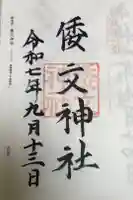 倭文神社
令和七年九月十三日